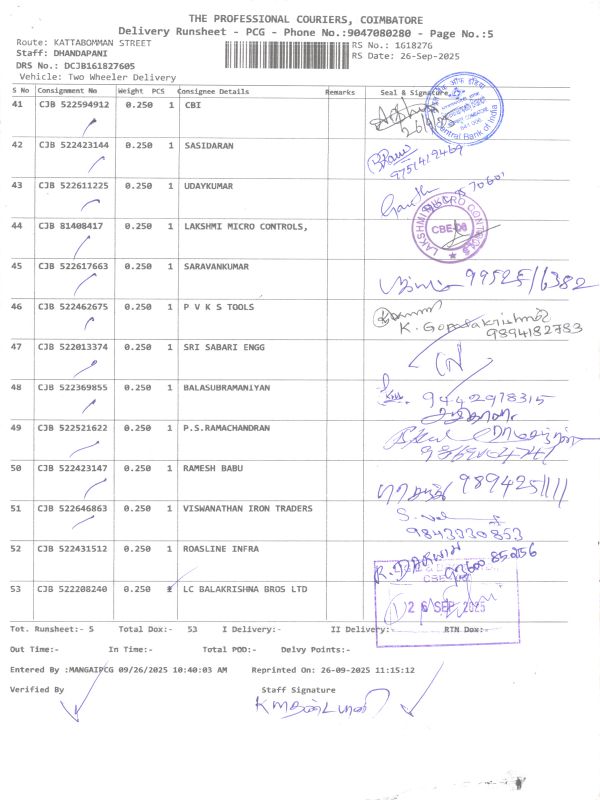 THE PROFESSIONAL COURIERS, COIMBATORE
Delivery Runsheet - PCG - Phone No.:9047080280 - Page No.:5
Route: KATTABOMMAN STREET
RS No.: 1618276
Staff: DHANDAPANI
RS Date: 26-Sep-2025
DRS No.: DCJB161827605
Vehicle: Two Wheeler Delivery
S No Consignment No Weight PCS Consignee Details Remarks Seal & Signature
41 CJB 522594912 0.250 1 CBI
Central Bank of India
42 CJB 522423144 0.250 1 SASIDARAN
9751419469
43 CJB 522611225 0.250 1 UDAYKUMAR
44 CJB 81408417 0.250 1 LAKSHMI MICRO CONTROLS,
LAKSHMI MICRO CONTROLS
45 CJB 522617663 0.250 1 SARAVANKUMAR
99525/6382
46 CJB 522462675 0.250 1 P V K S TOOLS
K. Gopalakrishnan
9894182783
47 CJB 522013374 0.250 1 SRI SABARI ENGG
48 CJB 522369855 0.250 1 BALASUBRAMANIYAN
9442978315
49 CJB 522521622 0.250 1 P.S.RAMACHANDRAN
50 CJB 522423147 0.250 1 RAMESH BABU
51 CJB 522646863 0.250 1 VISWANATHAN IRON TRADERS
9843030853
52 CJB 522431512 0.250 1 ROASLINE INFRA
R. DARWIN
53 CJB 522208240 0.250 1 LC BALAKRISHNA BROS LTD
26 SEP 2025
Tot. Runsheet:- 5 Total Dox:- 53 I Delivery:- II Delivery:- RTN Dox:-
Out Time:- In Time:- Total POD:- Delvy Points:-
Entered By :MANGAIPCG 09/26/2025 10:40:03 AM Reprinted On: 26-09-2025 11:15:12
Verified By Staff Signature